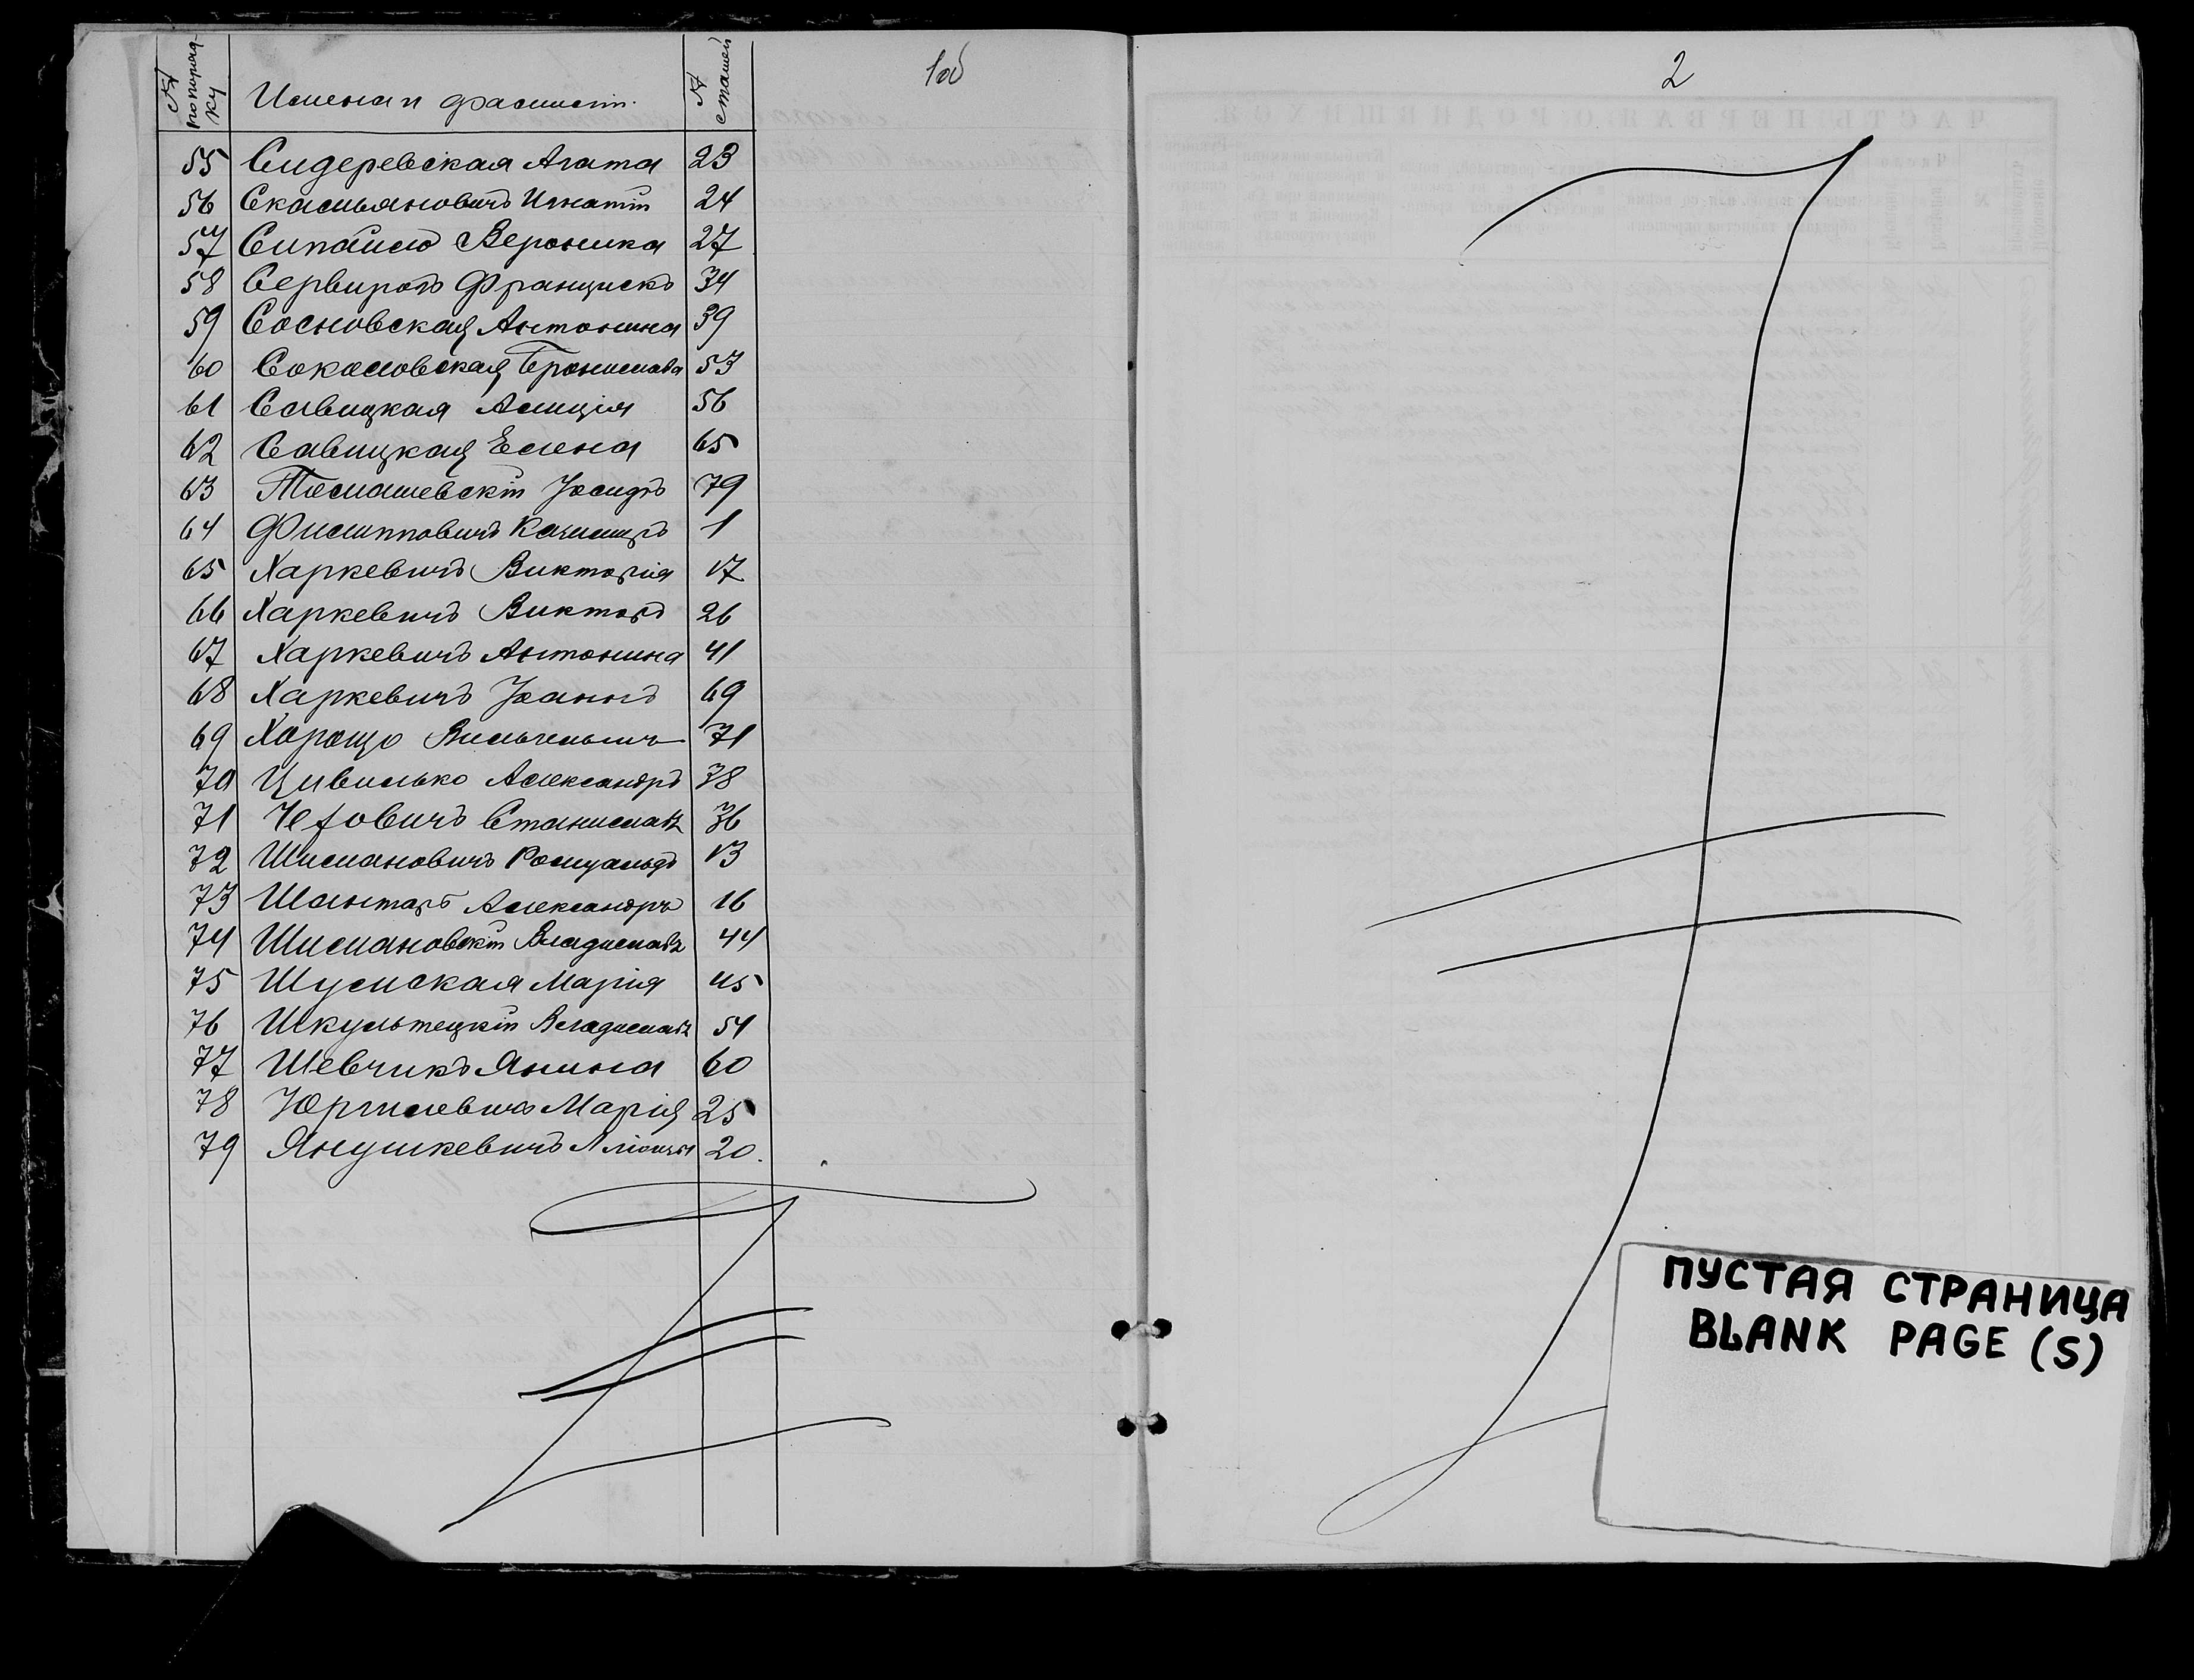 № по порядку Имена и фамилiи. № статей
1об
55 Сидеревская Агата 23
56 Скасьяновичъ Игнатiй 24
57 Сипайло Вероника 27
58 Сервиродъ Францискъ 34
59 Сосновская Антонина 39
60 Соколовская Бронислава 53
61 Савицкая Алицiя 56
62 Савицкая Елена 65
63 Томашевскiй Iосифъ 79
64 Филипповичъ Казимiръ 1
65 Харкевичъ Викторiя 17
66 Харкевичъ Викторъ 26
67 Харкевичъ Антонина 41
68 Харкевичъ Iоаннъ 69
69 Хорощо Вильгельмъ 71
70 Цивилько Александръ 38
71 Чеховичъ Станиславъ 36
72 Шимановичъ Ромуальдъ 13
73 Шантаръ Александръ 16
74 Шимановскiй Владиславъ 44
75 Шумская Марiя 45
76 Шкультецкiй Владиславъ 54
77 Шевчикъ Янина 60
78 Юргилевичъ Марiя 25
79 Янушкевичъ 20.
2
ЧАСТЬ ПЕРВАЯ, О РОДИВШИХСЯ.
ПУСТАЯ СТРАНИЦА
BLANK PAGE (S)